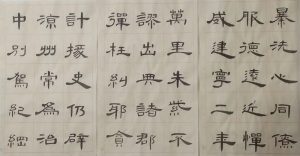 計掾史仍辟
涼州常為治
中別駕紀綱
萬里朱紫不
謬出典諸郡
彈枉糾邪貪
暴洗心同僚
服德遠近憚
威建寧二年